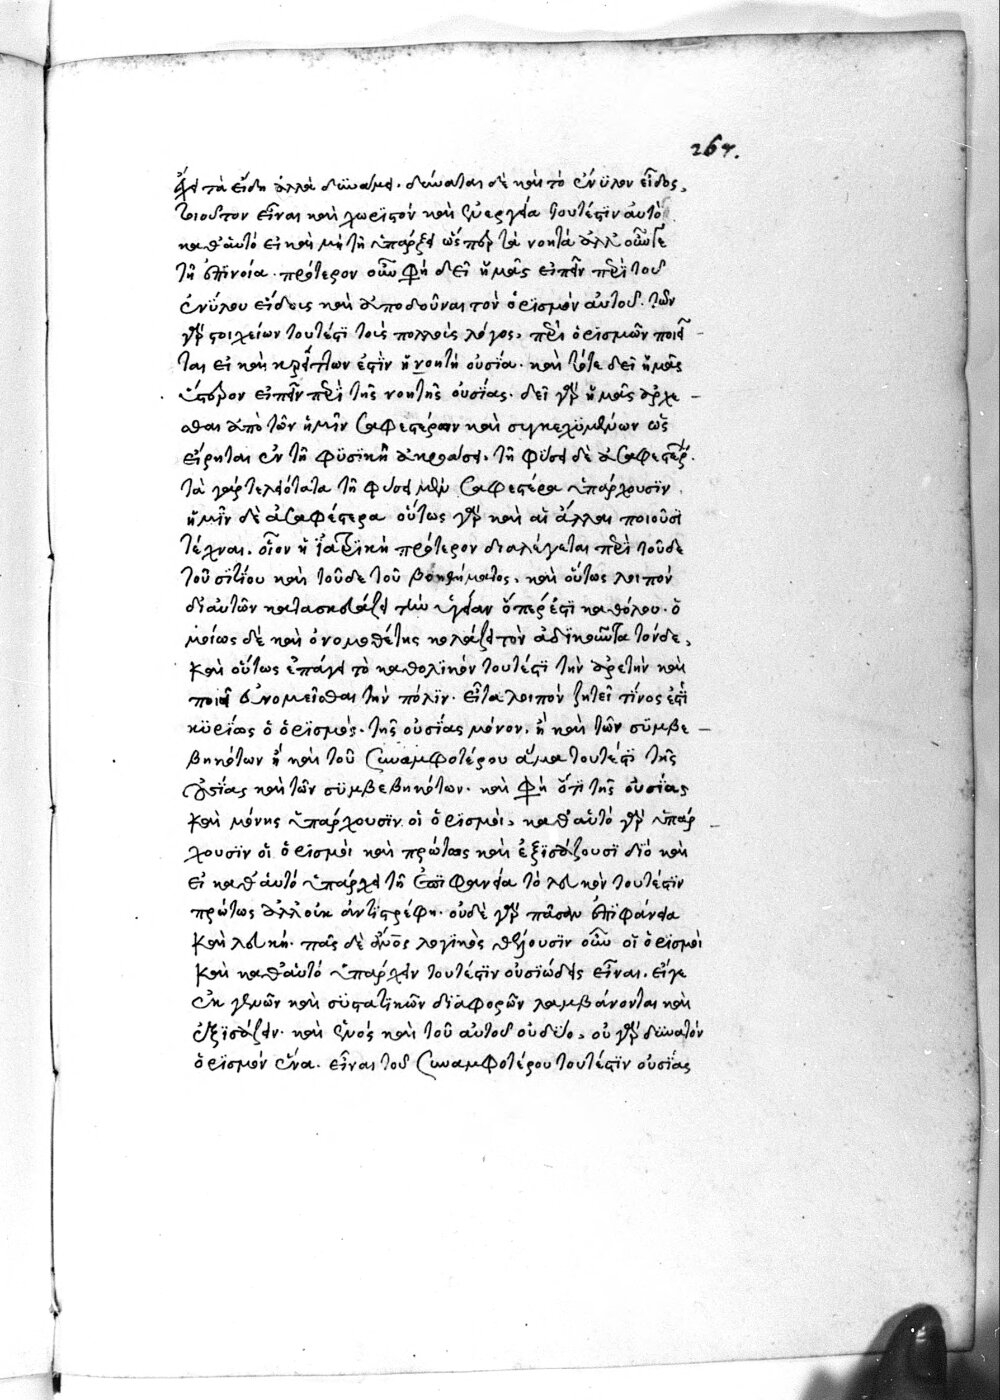 267.
τὰ εἴδη ἀλλὰ δυνάμει. δύναται δὲ καὶ τὸ ἔνυλον εἶδος,
τοιοῦτον εἶναι καὶ χωριστὸν καὶ ἐνεργεία τουτέστιν αὐτὸ
καθ' αὑτό εἰ καὶ μὴ τῆ ὑπάρξει ὥσπερ τὰ νοητά ἀλλ' οὖν τε
τῆ ἐπινοία. πρότερον οὖν φη δεῖ ἡμᾶς εἰπεῖν περὶ τοῦ
ἐνύλου εἴδους καὶ ἀποδοῦναι τὸν ὁρισμὸν αὐτοῦ. τῶν
γὰρ στοιχείων τουτέστι τοὺς πολλοὺς λόγους, περὶ ὁρισμῶν ποιεῖ
ται εἰ καὶ κρείττων ἐστὶν ἡ νοητὴ οὐσία. καὶ τότε δεῖ ἡμᾶς
ὕστερον εἰπεῖν περὶ τῆς νοητῆς οὐσίας. δεῖ γὰρ ἡμᾶς ἄρχε
σθαι ἀπὸ τῶν ἡμῖν σαφεστέρων καὶ συγκεχυμένων ὡς
εἴρηται ἐν τῆ φυσικῆ ἀκροάσει. τῆ φύσει δὲ ἀσαφεστέρων.
τὰ γὰρ τελεώτατα τῆ φύσει μὲν σαφέστερα ὑπάρχουσιν.
ἡμῖν δὲ ἀσαφέστερα οὕτως γὰρ καὶ αἱ ἄλλαι ποιοῦσι
τέχναι. οἷον ἡ ἰατρικὴ πρότερον διαλέγεται περὶ τοῦδε
τοῦ σιτίου καὶ τοῦδε τοῦ βοηθήματος. καὶ οὕτως λοιπὸν
δι αὐτῶν κατασκευάζει τὴν ὑγείαν ὅπερ ἐστὶ καθόλου. ὁ
μοίως δὲ καὶ ὁ νομοθέτης κολάζει τὸν ἀδικοῦντα τόνδε,
καὶ οὕτως ἐπάγει τὸ καθολικὸν τουτέστι τὴν ἀρετὴν καὶ
ποιεῖ εὐνομεῖσθαι τὴν πόλιν. εἶτα λοιπὸν ζητεῖ τίνος ἐστὶ
κυρίως ὁ ὁρισμός. τῆς οὐσίας μόνον. ἢ καὶ τῶν συμβε
βηκότων ἢ καὶ τοῦ συναμφοτέρου ἅμα τουτέστι τῆς
οὐσίας καὶ τῶν συμβεβηκότων. καὶ φη ὅτι τῆς οὐσίας
καὶ μόνης ὑπάρχουσιν οἱ ὁρισμοί, καθ' αὑτό γὰρ ὑπάρ
χουσιν οἱ ὁρισμοὶ καὶ πρώτως καὶ ἐξισάζουσι διό καὶ
εἰ καθ' αὑτό ὑπάρχει τῆ ἐπιφανεία τὸ λευκὸν τουτέστιν
πρώτως ἀλλ' οὐκ ἀντιστρέφη. οὐδὲ γὰρ πᾶσα ἐπιφάνεια
καὶ λευκή. πᾶς δὲ ἄνος λογικὸς θέλουσιν οὖν οἱ ὁρισμοὶ
καὶ καθ' αὑτό ὑπάρχειν τουτέστιν οὐσιώδεις εἶναι. εἴγε
ἐκ γενῶν καὶ συστατικῶν διαφορῶν λαμβάνονται καὶ
ἐξισάζειν. καὶ ἑνὸς καὶ τοῦ αὐτοῦ οὐ δύο, οὐ γὰρ δυνατὸν
ὁρισμὸν ἕνα. εἶναι τοῦ συναμφοτέρου τουτέστιν οὐσίας